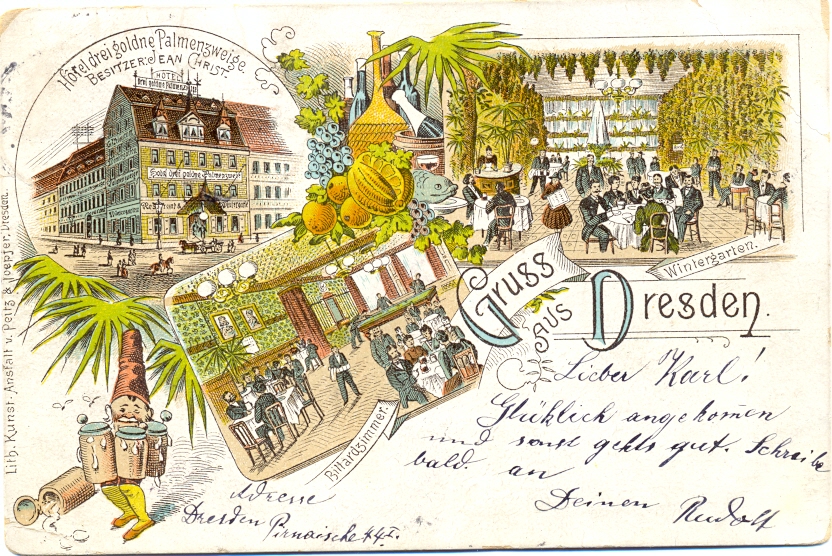 Hôtel drei goldne Palmenzweige.
BESITZER: JEAN CHRIST
HOTEL
drei goldne Palmenzweige
Hotel drei goldne Palmenzweige
Restaurant & Wintergarten
Wintergarten.
Gruss
AUS
Dresden.
Billardzimmer.
Lith. Kunst-Anstalt v. Peitz & Toepfer, Dresden.
Lieber Karl!
Glüklich angekom̄en
und sonst gehts gut. Schreibe
bald. an
Deinen Rudolf
Adresse
Dresden Pirnaische 44 I.